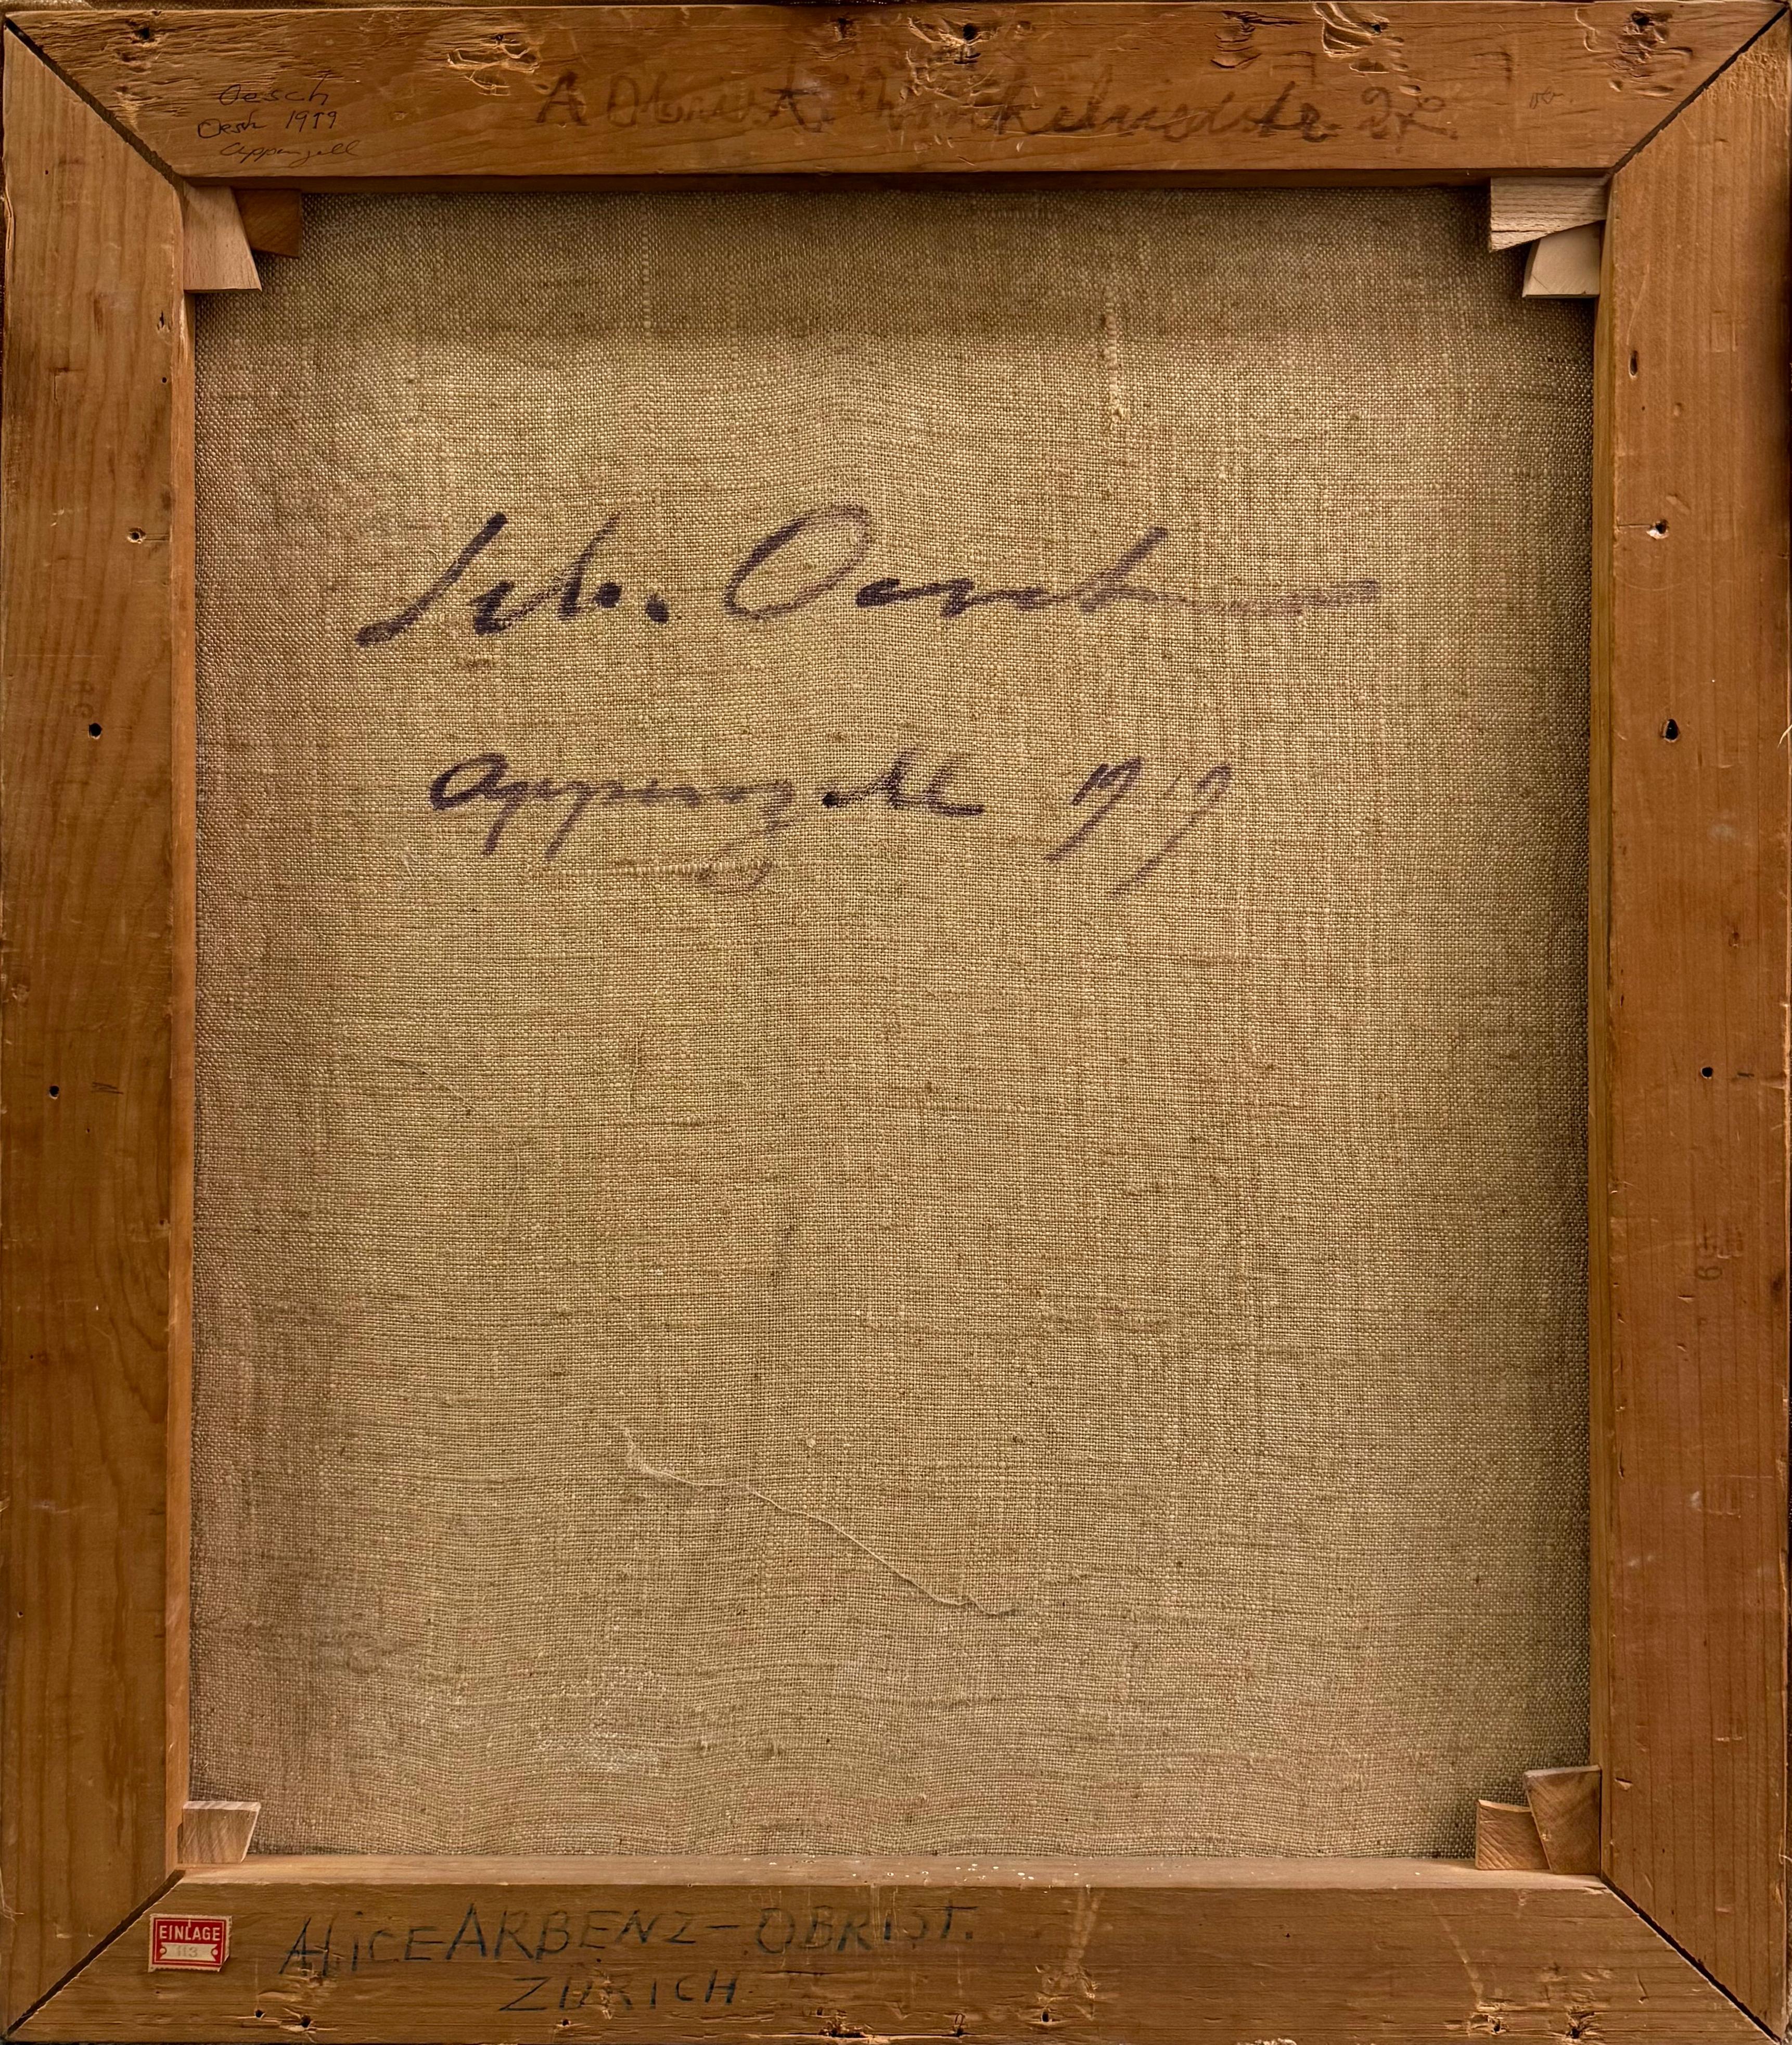 Oesch
Oesch 1919
Appenzell
A Obrist. Winkelriedstr. 27.
Seb. Oesch
Appenzell 1919
EINLAGE
113
AliCE ARBENZ-OBRIST.
ZÜRICH